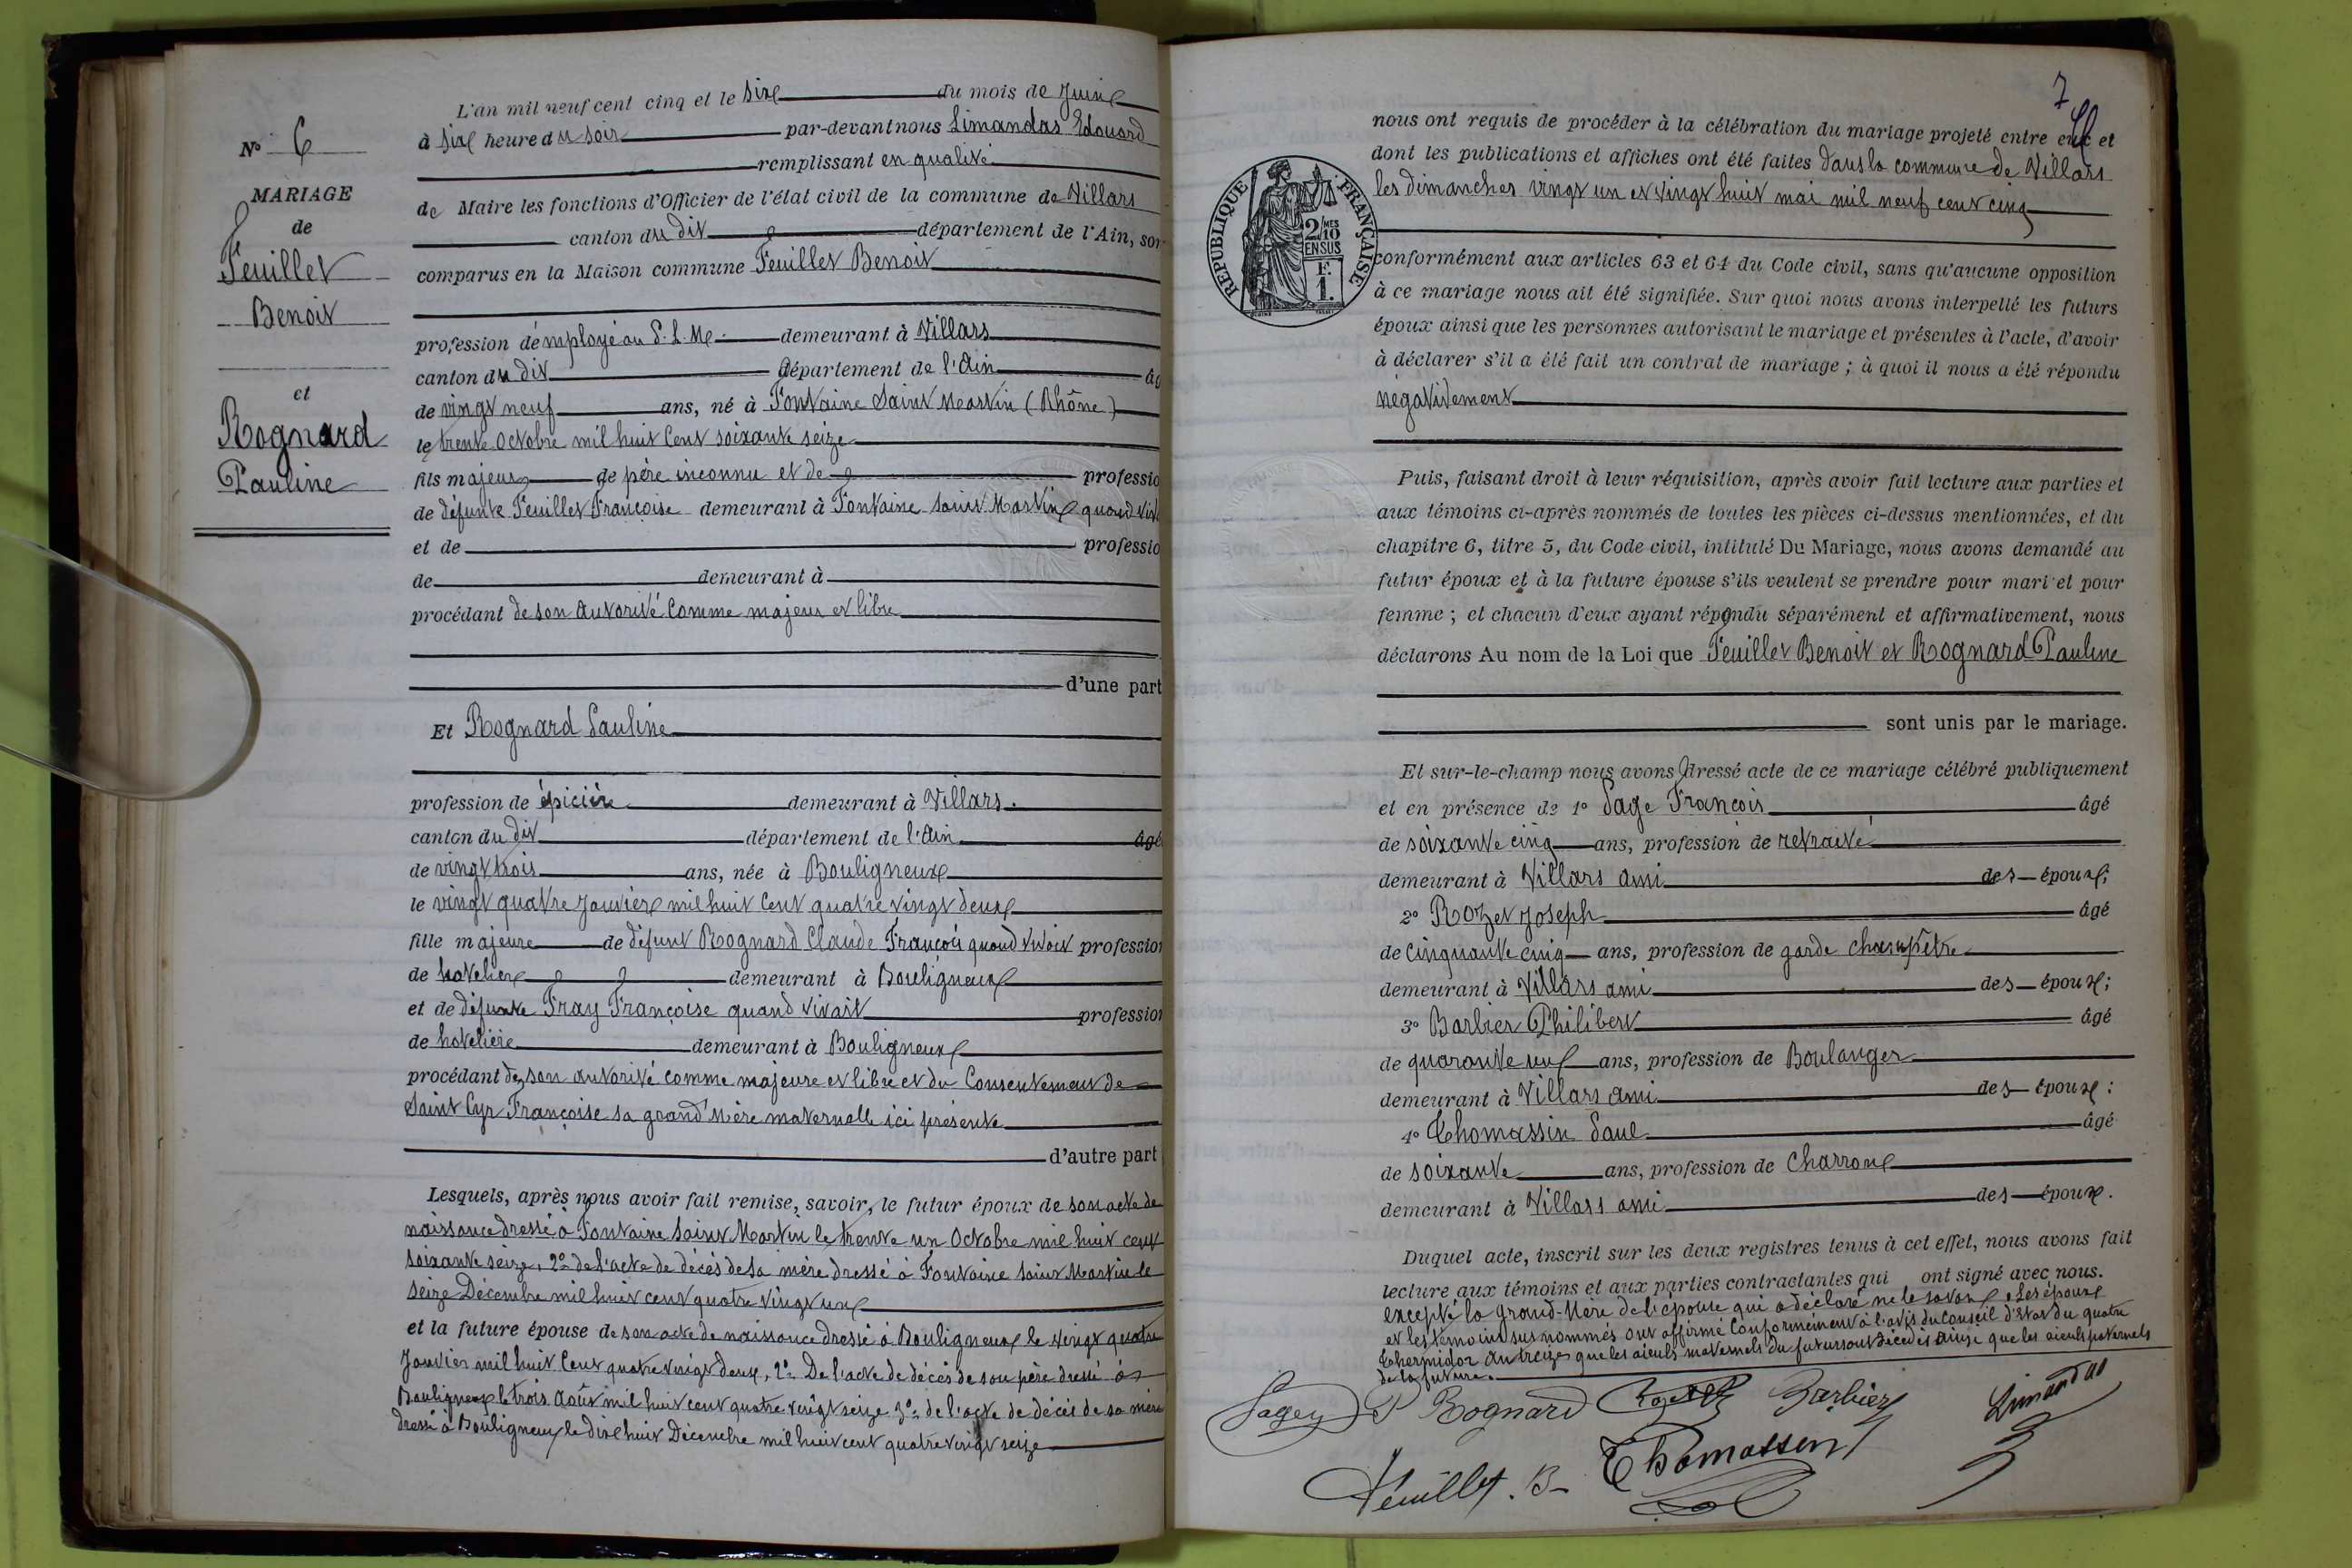 N° 6
MARIAGE
de
Feuillet
Benoit
et
Rognard
Pauline
L'an mil neuf cent cinq et le six du mois de Juin
à six heure du soir par-devant nous Limandas Edouard
remplissant en qualité
de Maire les fonctions d'Officier de l'état civil de la commune de Villars
canton du dit département de l'Ain, son
comparus en la Maison commune Feuillet Benoit
profession d'employé au P. L. M. demeurant à Villars
canton du dit département de l'Ain âg
de vingt neuf ans, né à Fontaine Saint Martin (Rhône)
le trente Octobre mil huit cent soixante seize
fils majeur de père inconnu et de professio
de défunte Feuillet Françoise demeurant à Fontaine Saint Martin quand viv
et de professio
de demeurant à
procédant de son autorité comme majeur et libre
d'une part
Et Rognard Pauline
profession de épicière demeurant à Villars.
canton du dit département de l'Ain âgé
de vingt trois ans, née à Bouligneux
le vingt quatre Janvier mil huit cent quatre vingt deux
fille majeure de défunt Rognard Claude François quand vivait profession
de hotelier demeurant à Bouligneux
et de défunte Fray Françoise quand vivait profession
de hotelière demeurant à Bouligneux
procédant de son autorité comme majeure et libre et du Consentement de
Saint Cyr Françoise sa grand'Mère maternelle ici présente
d'autre part
Lesquels, après nous avoir fait remise, savoir, le futur époux de son acte de
naissance dressé à Fontaine Saint Martin le trente un Octobre mil huit cent
soixante seize, 2° de l'acte de décès de sa mère dressé à Fontaine Saint Martin le
seize Décembre mil huit cent quatre vingt un
et la future épouse de son acte de naissance dressé à Bouligneux le vingt quatre
Janvier mil huit cent quatre vingt deux, 2° De l'acte de décès de son père dressé à
Bouligneux le trois Août mil huit cent quatre vingt seize 3° de l'acte de décès de sa mère
dressé à Bouligneux le dix huit Décembre mil huit cent quatre vingt seize
7
nous ont requis de procéder à la célébration du mariage projeté entre eux et
dont les publications et affiches ont été faites dans la commune de Villars
les dimanches vingt un et vingt huit mai mil neuf cent cinq
RÉPUBLIQUE FRANÇAISE
2/10 MES
EN SUS
F.
1.
conformément aux articles 63 et 64 du Code civil, sans qu'aucune opposition
à ce mariage nous ait été signifiée. Sur quoi nous avons interpellé les futurs
époux ainsi que les personnes autorisant le mariage et présentes à l'acte, d'avoir
à déclarer s'il a été fait un contrat de mariage ; à quoi il nous a été répondu
négativement
Puis, faisant droit à leur réquisition, après avoir fait lecture aux parties et
aux témoins ci-après nommés de toutes les pièces ci-dessus mentionnées, et du
chapitre 6, titre 5, du Code civil, intitulé Du Mariage, nous avons demandé au
futur époux et à la future épouse s'ils veulent se prendre pour mari et pour
femme ; et chacun d'eux ayant répondu séparément et affirmativement, nous
déclarons Au nom de la Loi que Feuillet Benoit et Rognard Pauline
sont unis par le mariage.
Et sur-le-champ nous avons dressé acte de ce mariage célébré publiquement
et en présence de 1° Page François âgé
de soixante cinq ans, profession de retraité
demeurant à Villars ami des époux;
2° Rozet Joseph âgé
de cinquante cinq ans, profession de garde champêtre
demeurant à Villars ami des époux;
3° Barbier Philibert âgé
de quarante neuf ans, profession de Boulanger
demeurant à Villars ami des époux :
4° Thomassin Paul âgé
de soixante ans, profession de Charron
demeurant à Villars ami des époux.
Duquel acte, inscrit sur les deux registres tenus à cet effet, nous avons fait
lecture aux témoins et aux parties contractantes qui ont signé avec nous.
excepté la grand-Mère de l'épouse qui a déclaré ne le savoir. Les époux
et les témoins susnommés ont affirmé Conformément à l'avis du Conseil d'Etat du quatre
Thermidor An treize que les aïeuls maternels du futur sont décédés ainsi que les aïeuls paternels
de la future.
P Rognard Rozet Barbier Limandas
Feuillet. B Thomassin